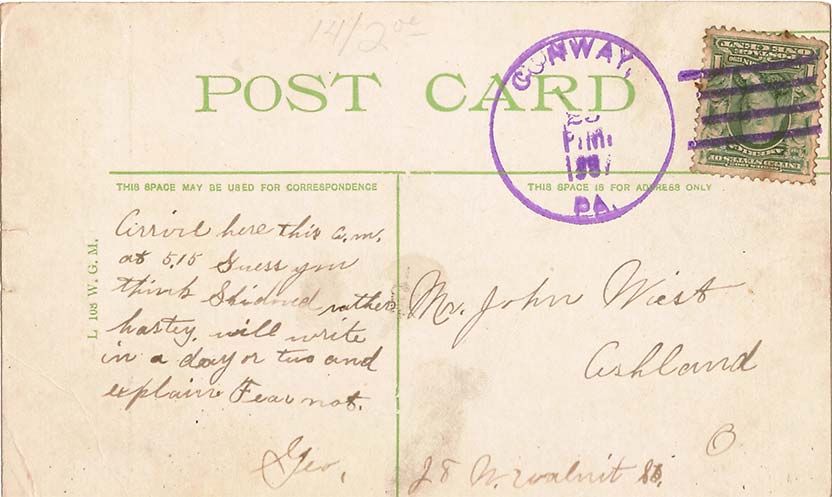 POST CARD
CONWAY,
P.M.
1907
PA.
POSTAGE
ONE CENT
UNITED STATES OF
AMERICA
THIS SPACE MAY BE USED FOR CORRESPONDENCE
THIS SPACE IS FOR ADDRESS ONLY
L 108 W. G. M.
here this a.m.
at 5.15 Guess you
think rather
hastey. will write
in a day or two and
explain Fear not.
Geo,
Mr. John Wiest
Ashland
O
28 N. Walnut St.